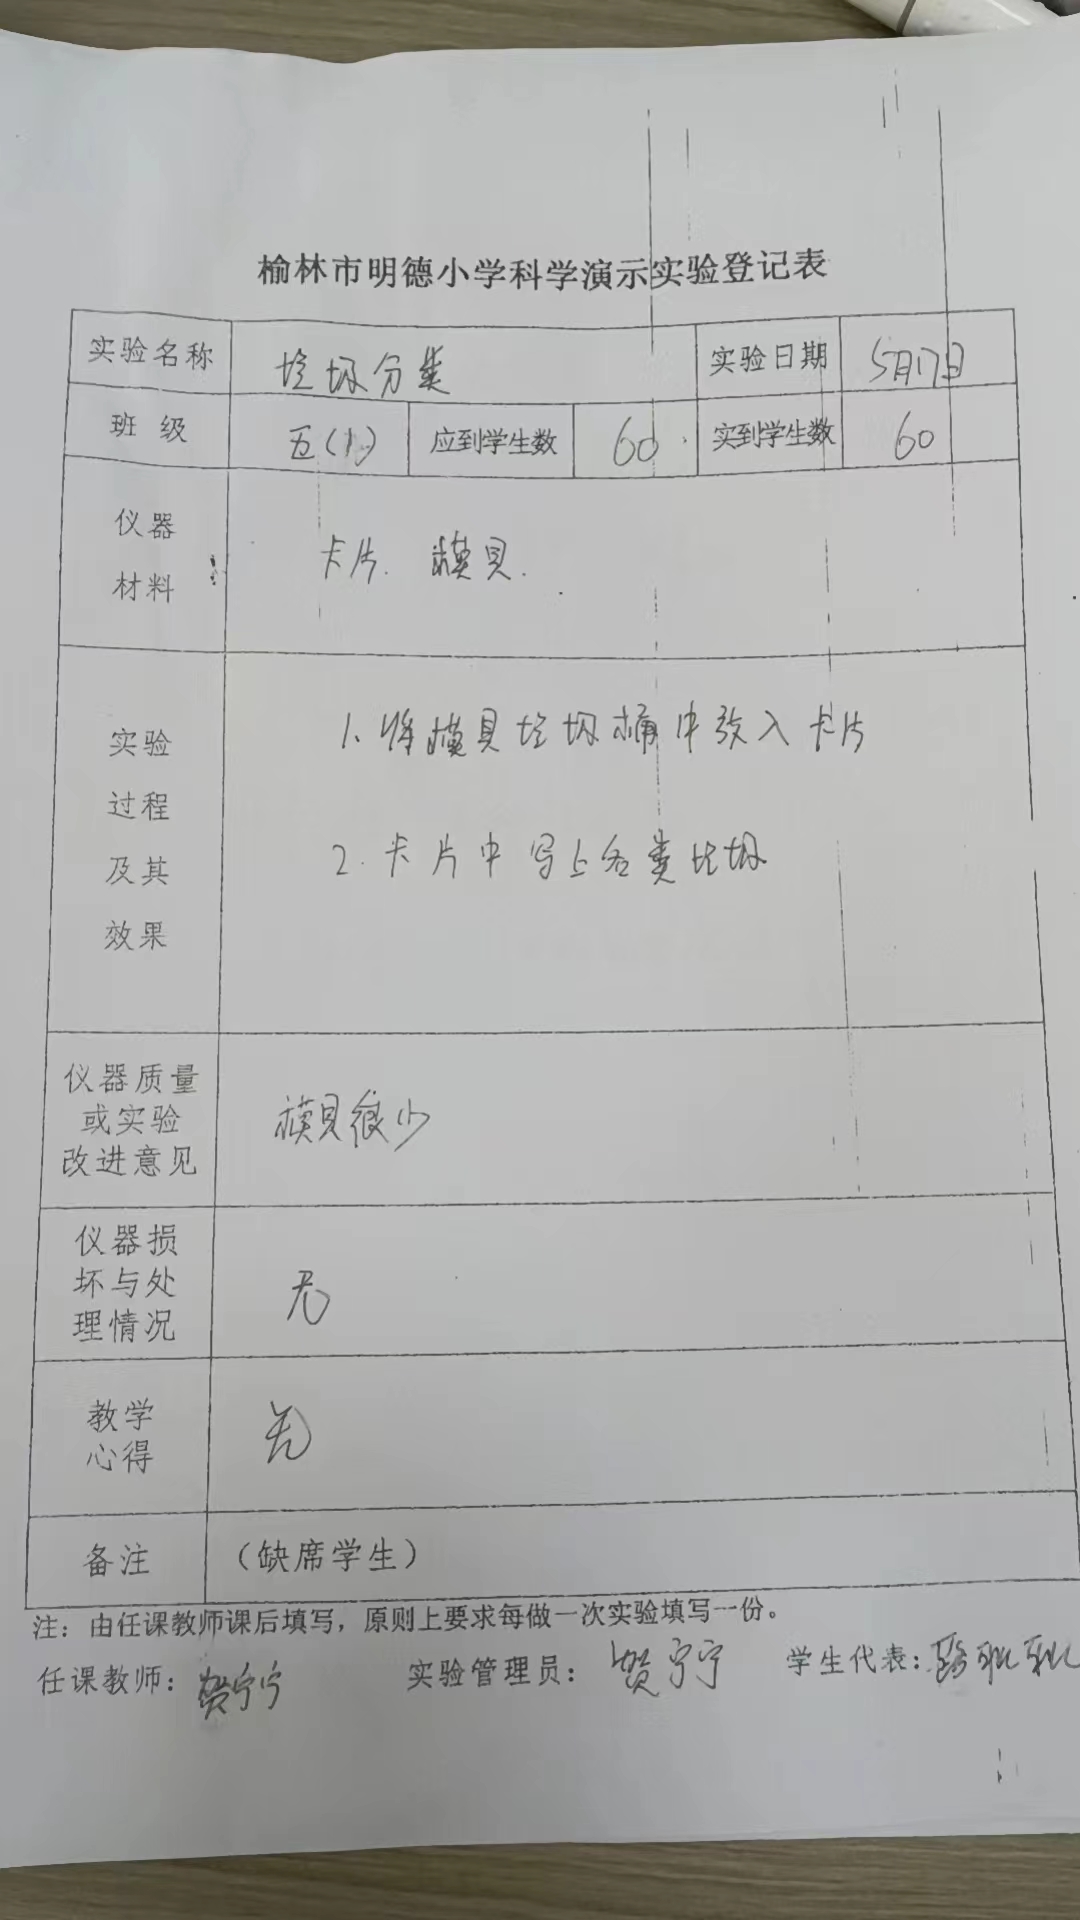 榆林市明德小学科学演示实验登记表
实验名称 垃圾分类 实验日期 5月17日
班级 五(1) 应到学生数 60 实到学生数 60
仪器
材料
卡片. 模具.
实验
过程
及其
效果
1. 将模具垃圾桶中放入卡片
2. 卡片中写上各类垃圾
仪器质量
或实验
改进意见
模具很少
仪器损
坏与处
理情况
无
教学
心得
无
备注 (缺席学生)
注：由任课教师课后填写，原则上要求每做一次实验填写一份。
任课教师：贺宁宁 实验管理员：贺宁宁 学生代表：